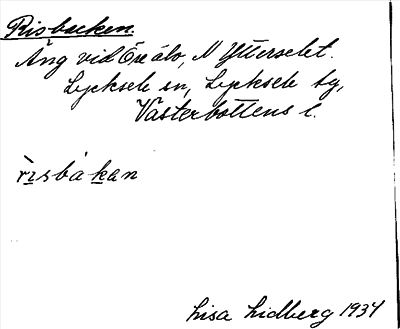 Risbacken.
Äng vid Öreälv, N Ytterselet.
Lycksele sn, Lycksele tg,
Västerbottens l.
rìsbákan
Lisa Lidberg 1934